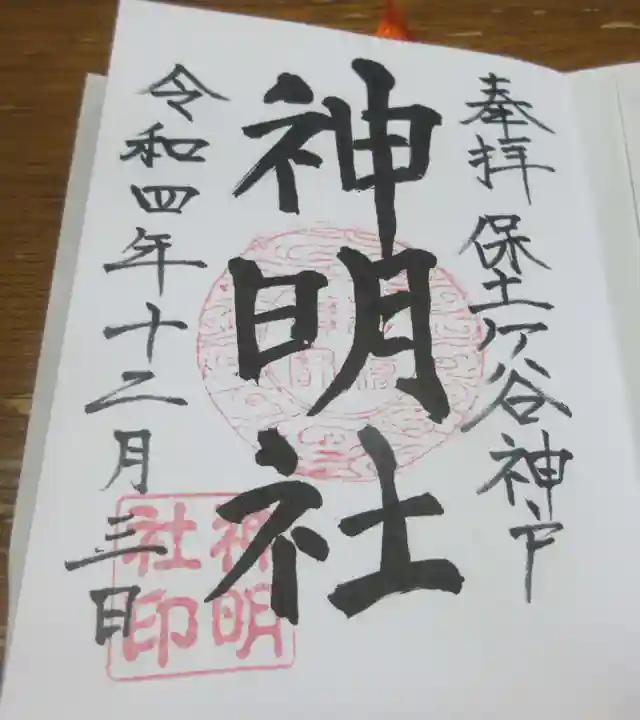 奉拝 保土ケ谷神戸
神明社
令和四年十二月三日
神明
社印